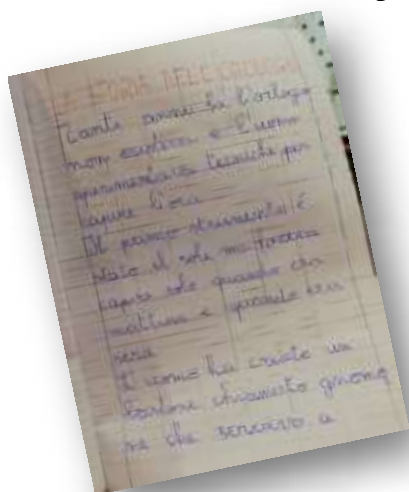 LA STORIA DELL'OROLOGIO
Tanti anni fa l'orologio
non esisteva e l'uomo
sperimentava tecniche per
capire l'ora
Il primo strumento è
stato il sole ma
capire solo quando era
mattina e quando era
sera
L'uomo ha creato un
bastone chiamato gnomo
ne che serviva a